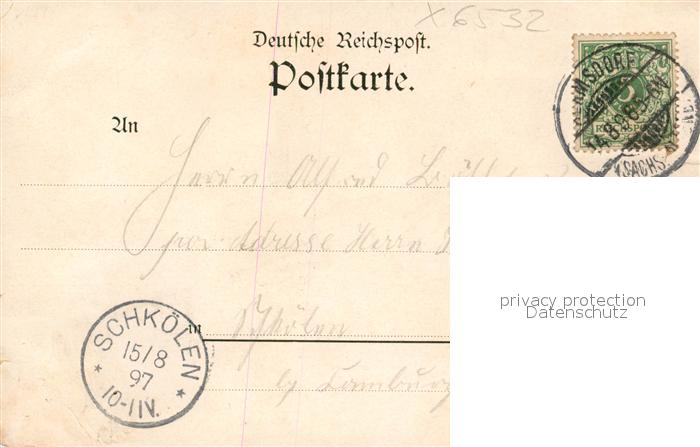 X 6532
Deutsche Reichspost.
Postkarte.
An
Herrn Alfred
per Adresse Herrn
in Schkölen
by Camburg
SCHKÖLEN
15/8
97
10-11V.
privacy protection
Datenschutz